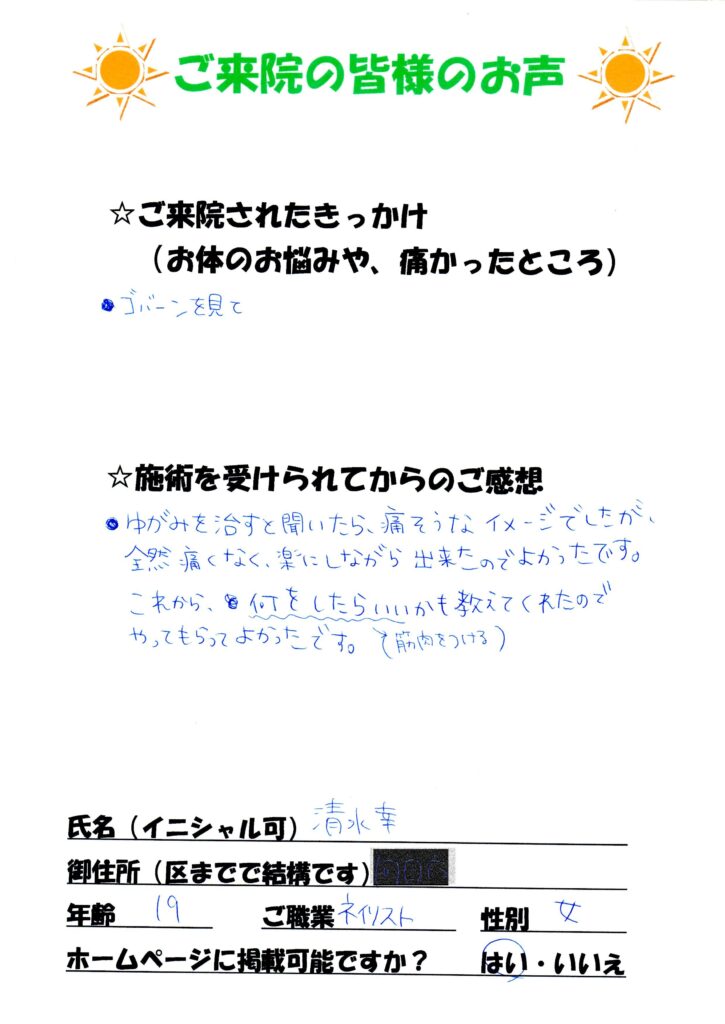 ご来院の皆様のお声
☆ご来院されたきっかけ
（お体のお悩みや、痛かったところ）
●ゴバーンを見て
☆施術を受けられてからのご感想
●ゆがみを治すと聞いたら、痛そうなイメージでしたが、
全然痛くなく、楽にしながら出来たのでよかったです。
これから、何をしたらいいかも教えてくれたので
やってもらってよかったです。(筋肉をつける)
氏名（イニシャル可）清水幸
御住所（区までで結構です）
年齢 19 ご職業 ネイリスト 性別 女
ホームページに掲載可能ですか？ はい・いいえ